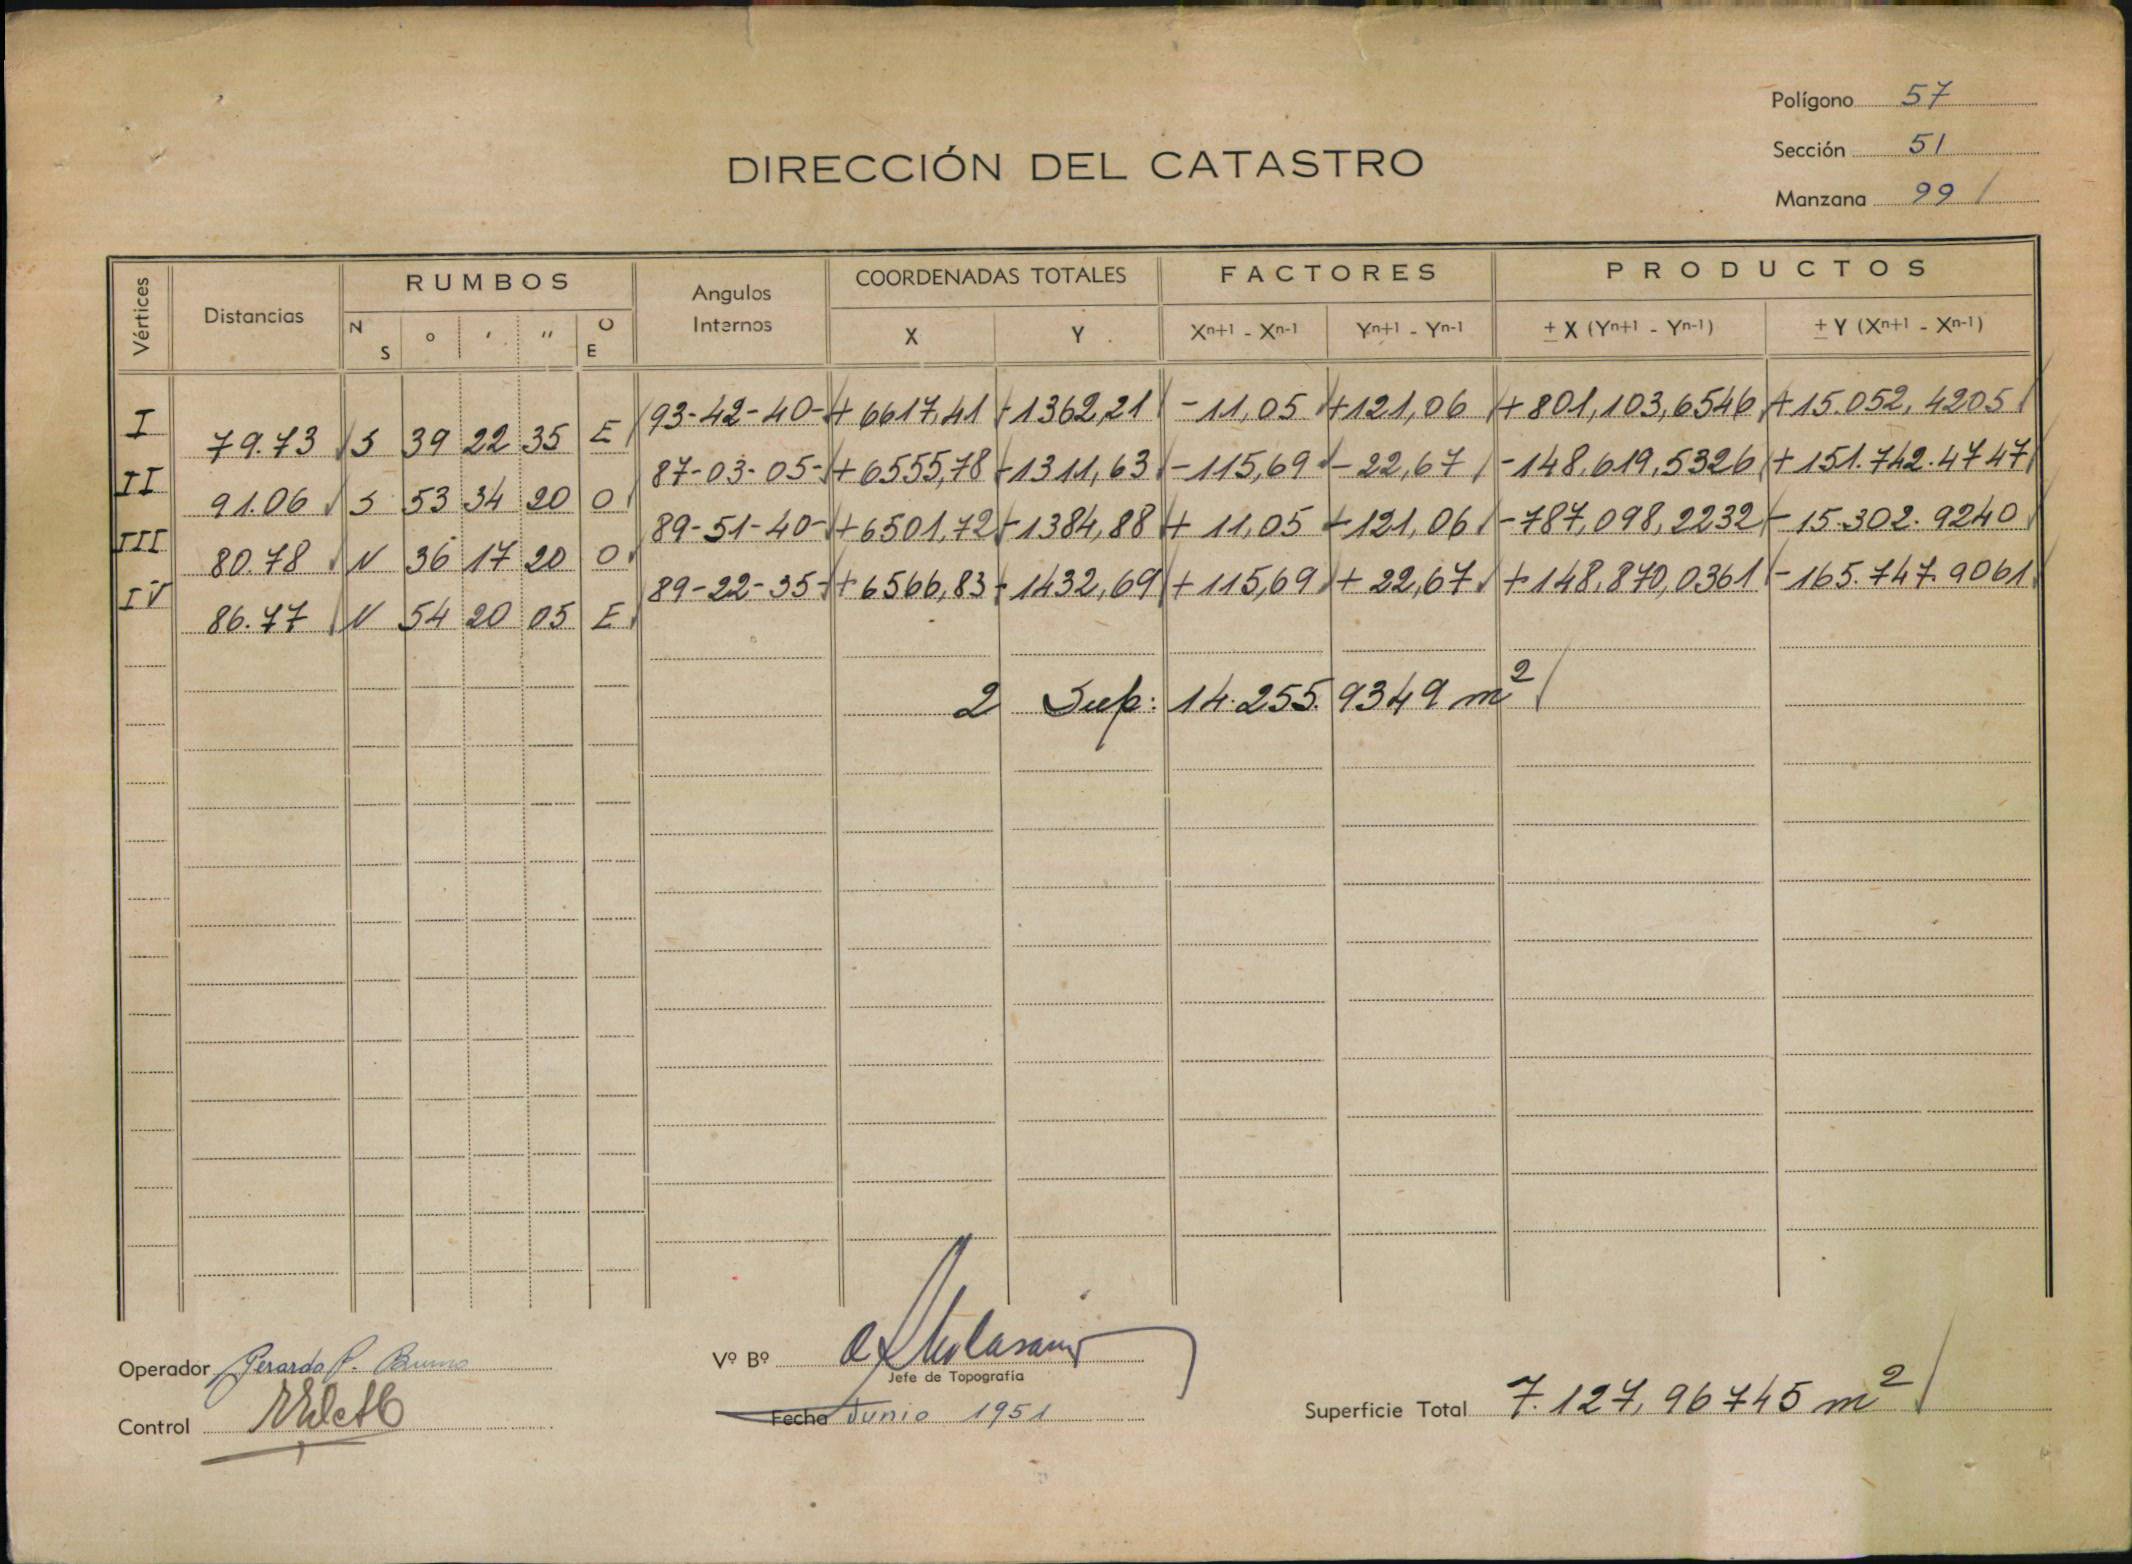 Polígono 57
Sección 51
Manzana 99
DIRECCIÓN DEL CATASTRO
Vértices Distancias RUMBOS N S ° ' " O E Angulos Internos COORDENADAS TOTALES X Y FACTORES Xn+1 - Xn-1 Yn+1 - Yn-1 PRODUCTOS ± X (Yn+1 - Yn-1) ± Y (Xn+1 - Xn-1)
I 93-42-40- + 6617,41 - 1362,21 - 11,05 + 121,06 + 801,103,6546 + 15.052,4205
79.73 S 39 22 35 E
II 87-03-05- + 6555,78 - 1311,63 - 115,69 - 22,67 - 148.619,5326 + 151.742.4747
91.06 S 53 34 20 O
III 89-51-40- + 6501,72 - 1384,88 + 11,05 - 121,06 - 787,098,2232 - 15.302.9240
80.78 N 36 17 20 O
IV 89-22-35- + 6566,83 - 1432,69 + 115,69 + 22,67 + 148.870,0361 - 165.747.9061
86.77 N 54 20 05 E
2 Sup: 14.255.9349 m²
Operador Gerardo P. Bruno
Control
Vº Bº
Jefe de Topografía
Fecha Junio 1951
Superficie Total 7.127,96745 m²